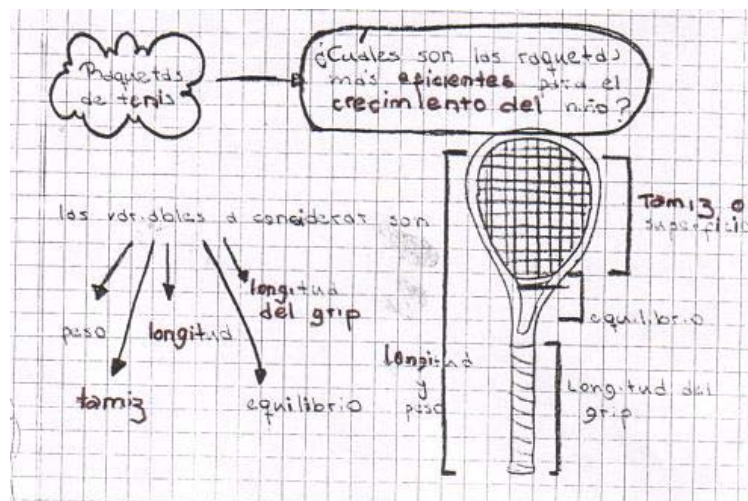 Raquetas
de tenis
¿Cuáles son las raquetas
más eficientes para el
crecimiento del niño?
las variables a considerar son
peso
tamiz
longitud
equilibrio
longitud
del grip
longitud
y
peso
Tamiz o
superficie
equilibrio
Longitud del
grip